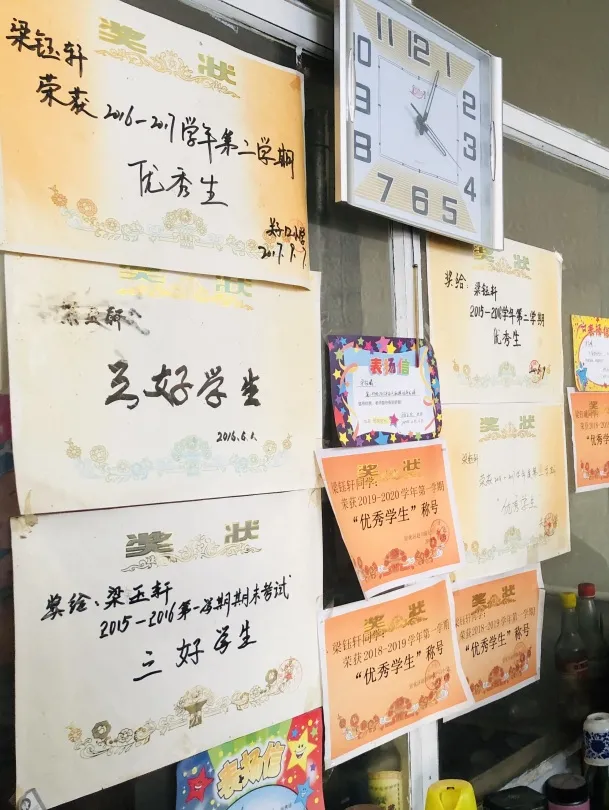 奖 状
梁钰轩
荣获2016-2017学年第二学期
优秀生
2017.9.7
奖 状
三好学生
2016.6.1.
奖 状
奖给:梁玉轩
2015-2016第一学期期末考试
三好学生
表扬信
11 12 1
10 2
9 3
8 4
7 6 5
奖 状
奖给:梁钰轩
2015-2016学年第二学期
优秀生
表扬信
奖 状
梁钰轩同学:
荣获2019-2020学年第一学期
“优秀学生”称号
奖 状
梁钰轩
优秀学生
奖 状
梁钰轩同学:
荣获2018-2019学年第一学期
“优秀学生”称号
奖 状
荣获2018-2019学年第
“优秀学生”称号
奖
“优秀学